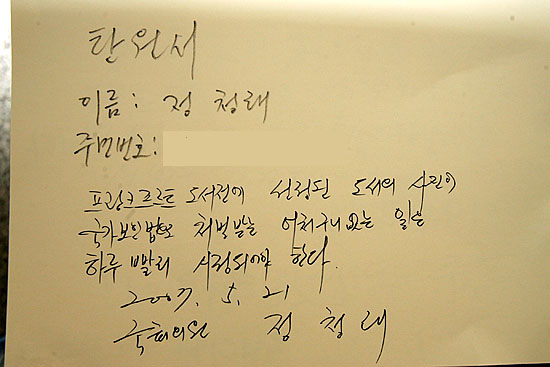 탄원서
이름: 정 청래
주민번호:
프랑크푸르트 도서전에 선정된 도서의 사진이
국가보안법으로 처벌받는 어처구니없는 일은
하루 빨리 시정되어야 한다.
2007. 5. 21
국회의원 정 청 래